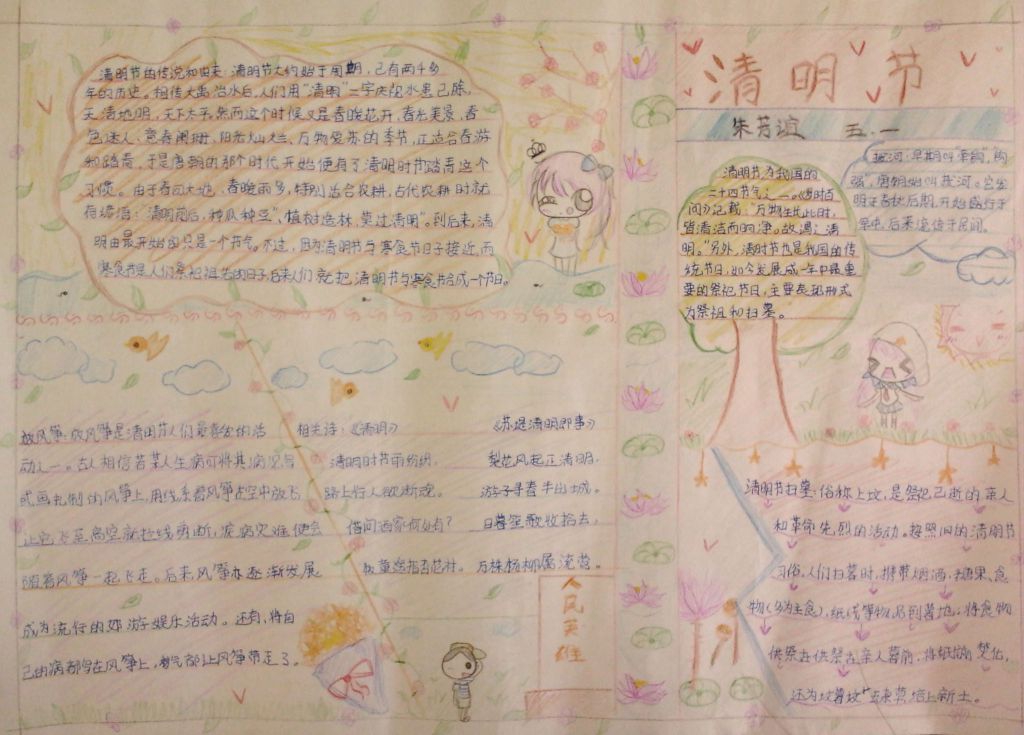 清明节
朱芳谊 五.一
清明节的传说和由来:清明节大约始于周期,已有两千多
年的历史。相传大禹治水后,人们用"清明"一字庆祝水患已除,
天清地明,天下太平。然而这个时候又是春暖花开,春光美景,春
色迷人,意春阑珊,阳光灿烂、万物复苏的季节,正适合春游
和踏青,于是唐朝的那个时代开始便有了清明时节踏青这个
习惯。由于春回大地,春晚雨多,特别适合农耕,古代农耕时就
有谚语:"清明前后,种瓜种豆","植树造林,莫过清明"。到后来,清
明由最开始的只是一个节气。不过,因为清明节与寒食节日子接近,而
寒食节是人们祭祀祖先的日子后来人们就把清明节与寒食节合成一个节日。
清明节为我国的
二十四节气之一。《岁时百
问》记载:"万物生长此时,
皆清洁而明净。故谓之清
明。"另外,清明节也是我国的传
统节日,如今发展成一年中最重
要的祭祀节日,主要表现形式
为祭祖和扫墓。
拔河:早期叫"牵钩",钩
强",唐朝始叫拔河。它发
明于春秋后期,开始盛行于
军中,后来流传于民间。
放风筝:放风筝是清明节人们最喜爱的活
动之一。古人相信若某人生病可将其病况写
或画扎制的风筝上,用线系着风筝在空中放飞
让它飞至高空就把线剪断,疾病灾难便会
随着风筝一起飞走。后来风筝亦逐渐发展
成为流行的郊游娱乐活动。还有,将自
己的病都写在风筝上,晦气都让风筝带走了。
相关诗:《清明》
清明时节雨纷纷,
路上行人欲断魂。
借问酒家何处有?
牧童遥指杏花村。
《苏堤清明即事》
梨花风起正清明,
游子寻春半出城。
日暮笙歌收拾去,
万株杨柳属流莺。
人民英雄
清明节扫墓:俗称上坟,是祭祀已逝的亲人
和革命先烈的活动。按照旧的清明节
习俗,人们扫墓时,携带烟酒、糖果、食
物(多为主食),纸钱等物品到墓地,将食物
供祭在供祭在亲人墓前,将纸钱焚化,
还为坟墓坟"五束草,培上新土。